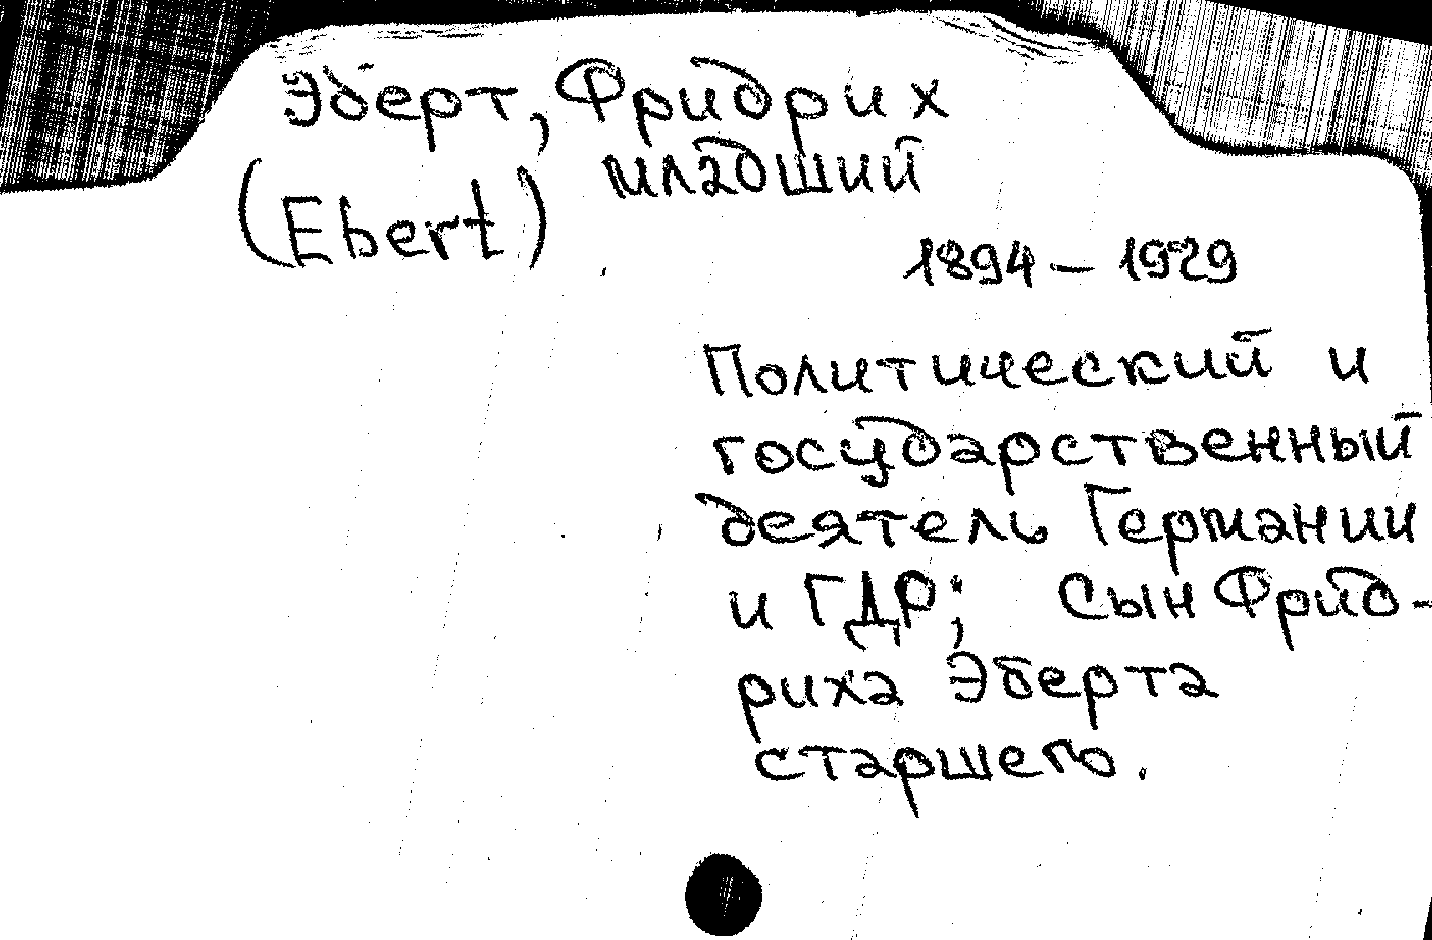 Эберт, Фридрих
младший
(Ebert)
1894 – 1929
Политический и
государственный
деятель Германии
и ГДР; Сын Фрид-
риха Эберта
старшего.